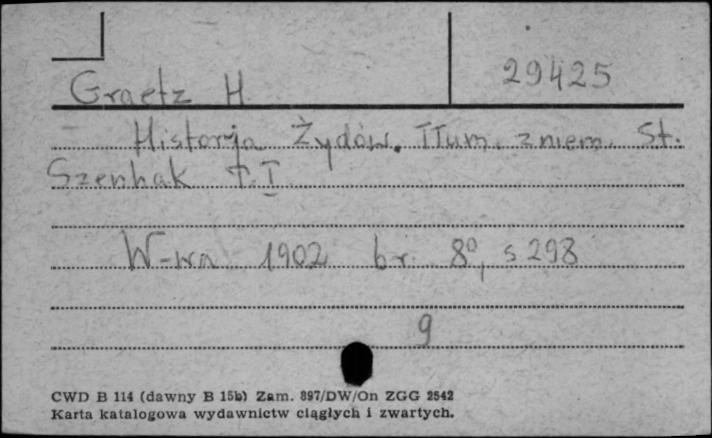 29425
Graetz H.
Historja Żydów. Tłum. z niem. St.
Szenhak T. I
W-wa 1902 br. 8°, s 298
9
CWD B 114 (dawny B 15b) Zam. 897/DW/On ZGG 2542
Karta katalogowa wydawnictw ciągłych i zwartych.